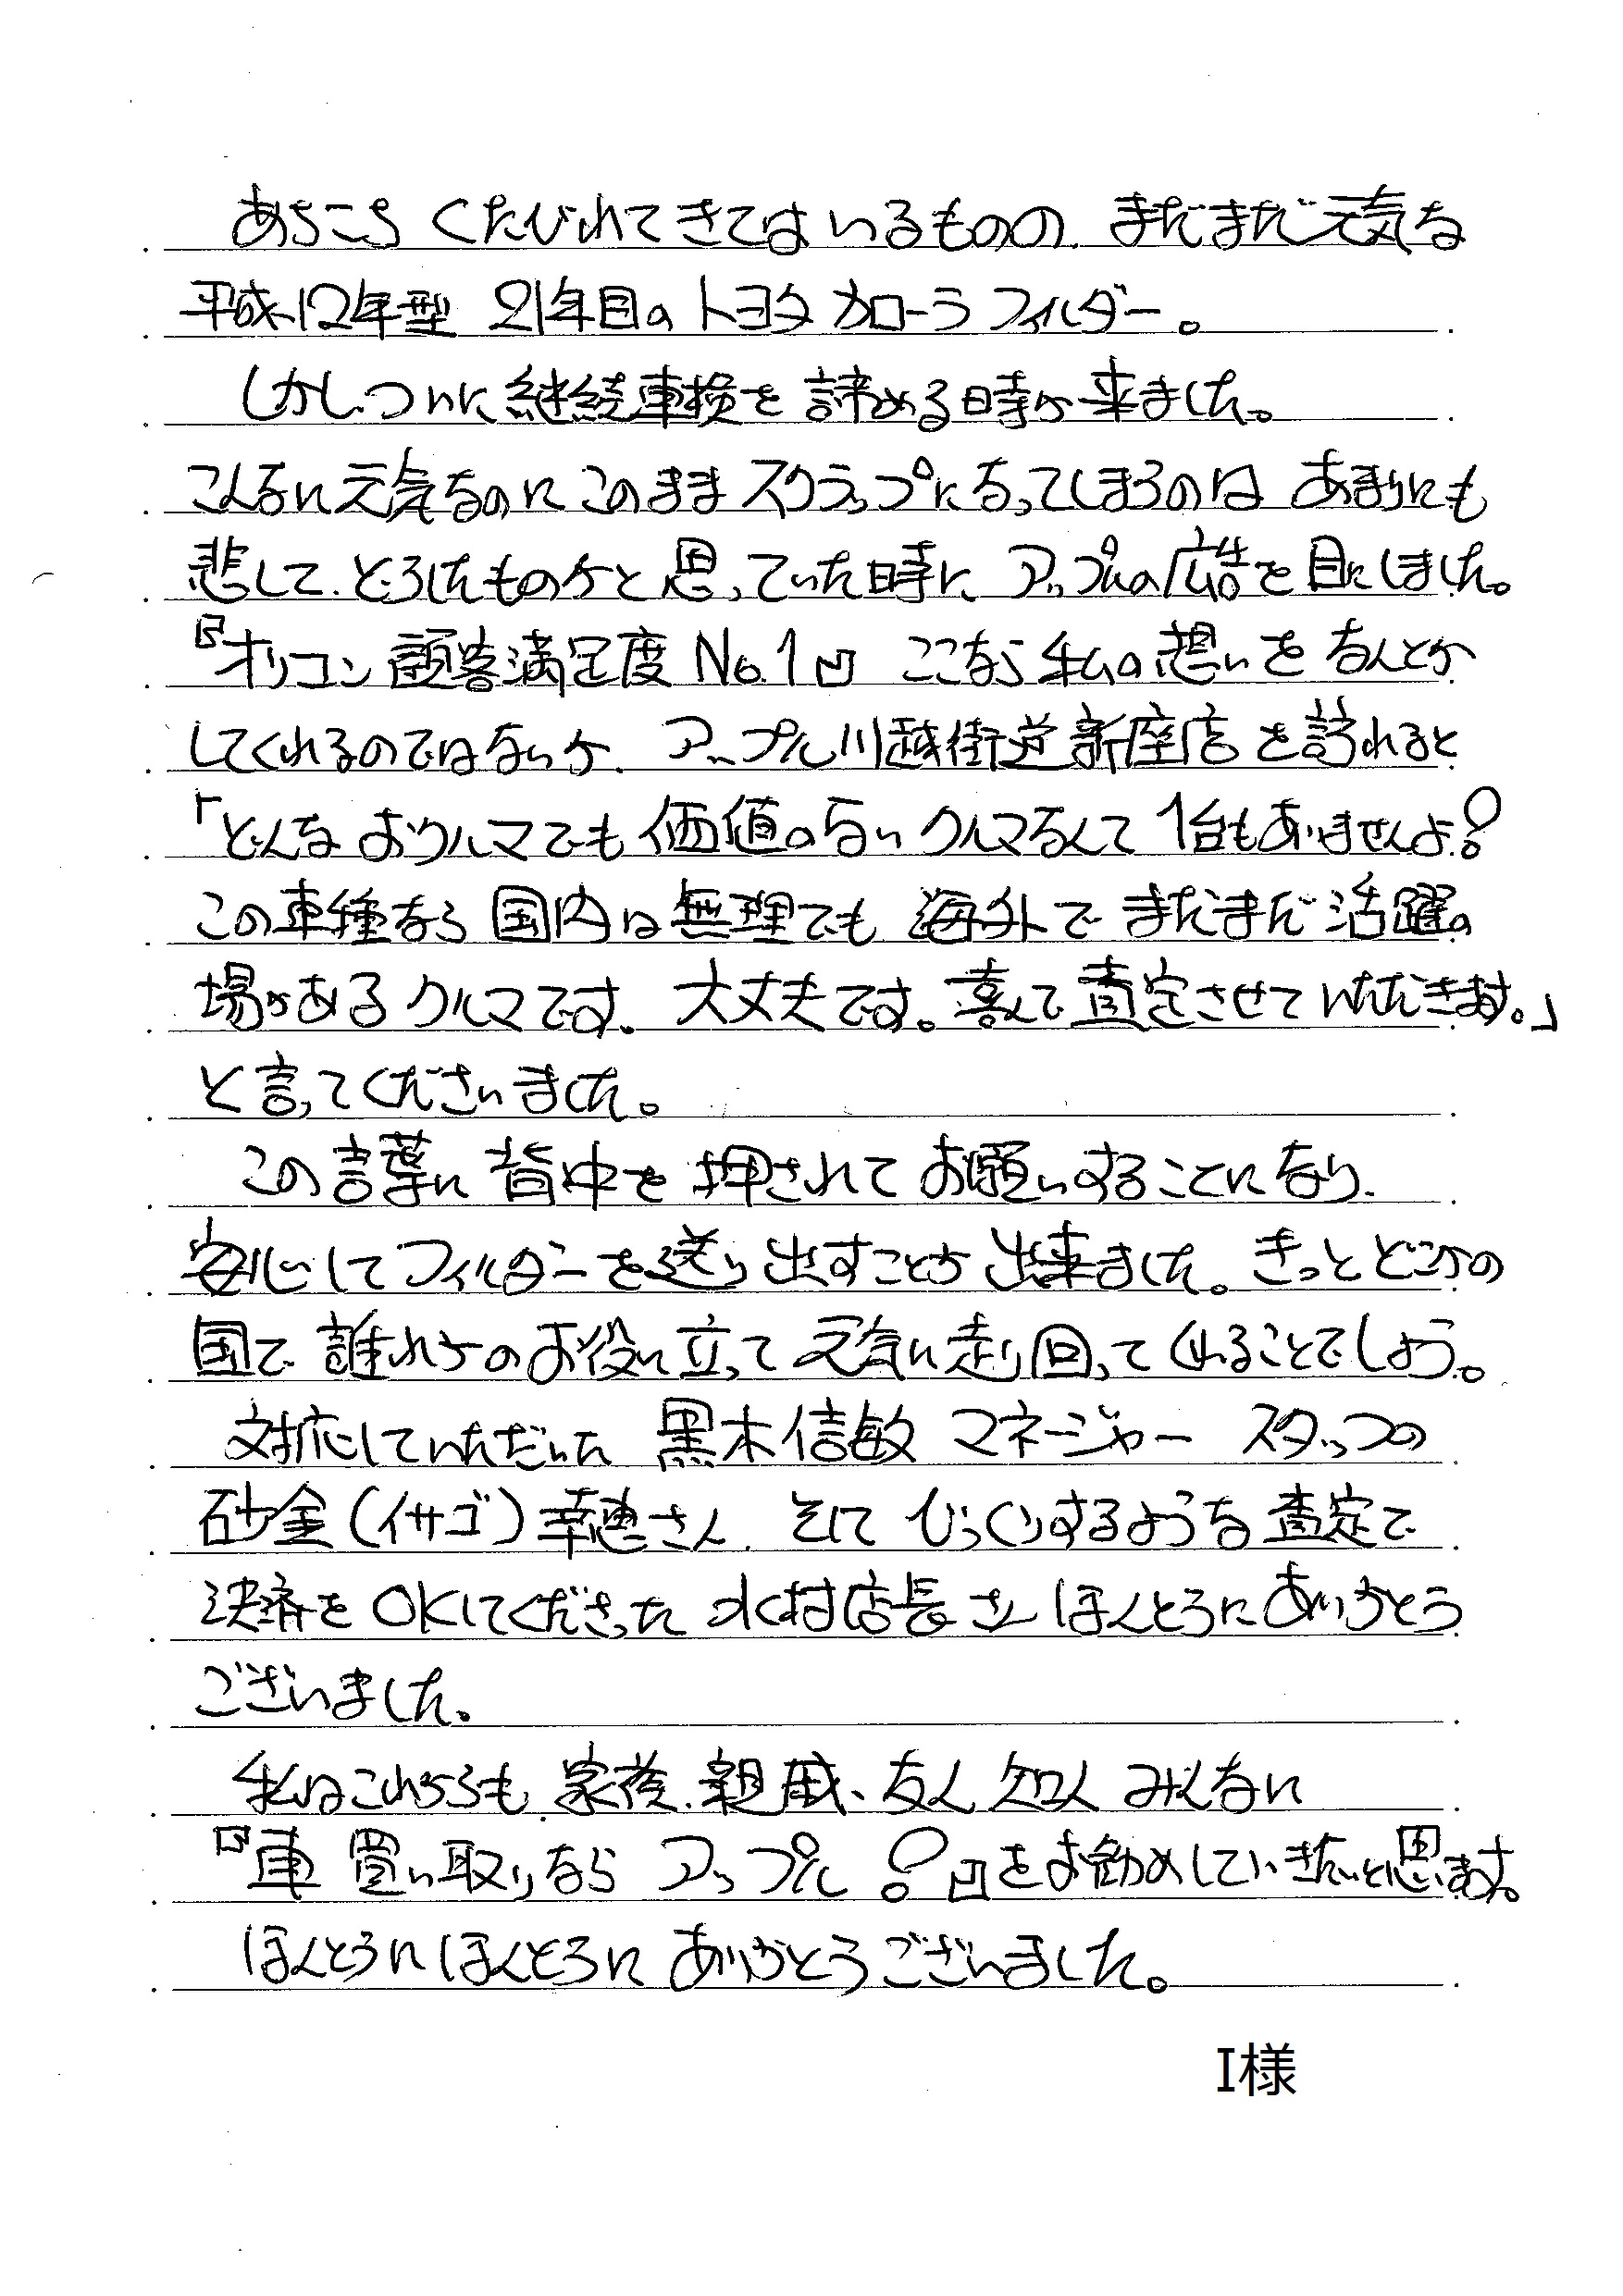 あちこち くたびれてきてはいるものの、まだまだ元気な
平成12年型 21年目の トヨタ カローラ フィルダー。
しかし、ついに 継続車検を 諦める時が来ました。
こんなに元気なのに このまま スクラップになってしまうのは あまりにも
悲しくて、どうしたものかと 思っていた時に アップルの広告を目にしました。
『オリコン 顧客満足度 No.1』 ここなら 私の想いを なんとか
してくれるのではないか、アップル川越街道新座店を訪れると
「どんな おクルマでも 価値のない クルマなんて 1台もありませんよ!
この車種なら 国内は無理でも、海外で まだまだ活躍の
場があるクルマです、大丈夫です。喜んで査定させていただきます。」
と言ってくださいました。
この言葉に 背中を 押されて お願いすることになり、
安心して フィルダーを送り出すことが 出来ました。きっと どこかの
国で 誰れかの お役に立って 元気に走り回って くれることでしょう。
対応していただいた 黒木信敏 マネージャー スタッフの
砂金(イサゴ)幸穂さん、そして びっくりするような査定で
決済を OKしてくださった 水村店長さん ほんとうにありがとう
ございました。
私はこれからも、家族、親戚、友人 知人 みんなに
『車 買い取りなら アップル!』をお勧めしていきたいと思います。
ほんとうに ほんとうに ありがとうございました。
I様